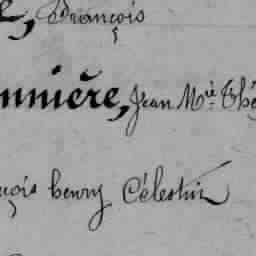 , François
nnière, Jean Mie Thé
çois henry Célestin